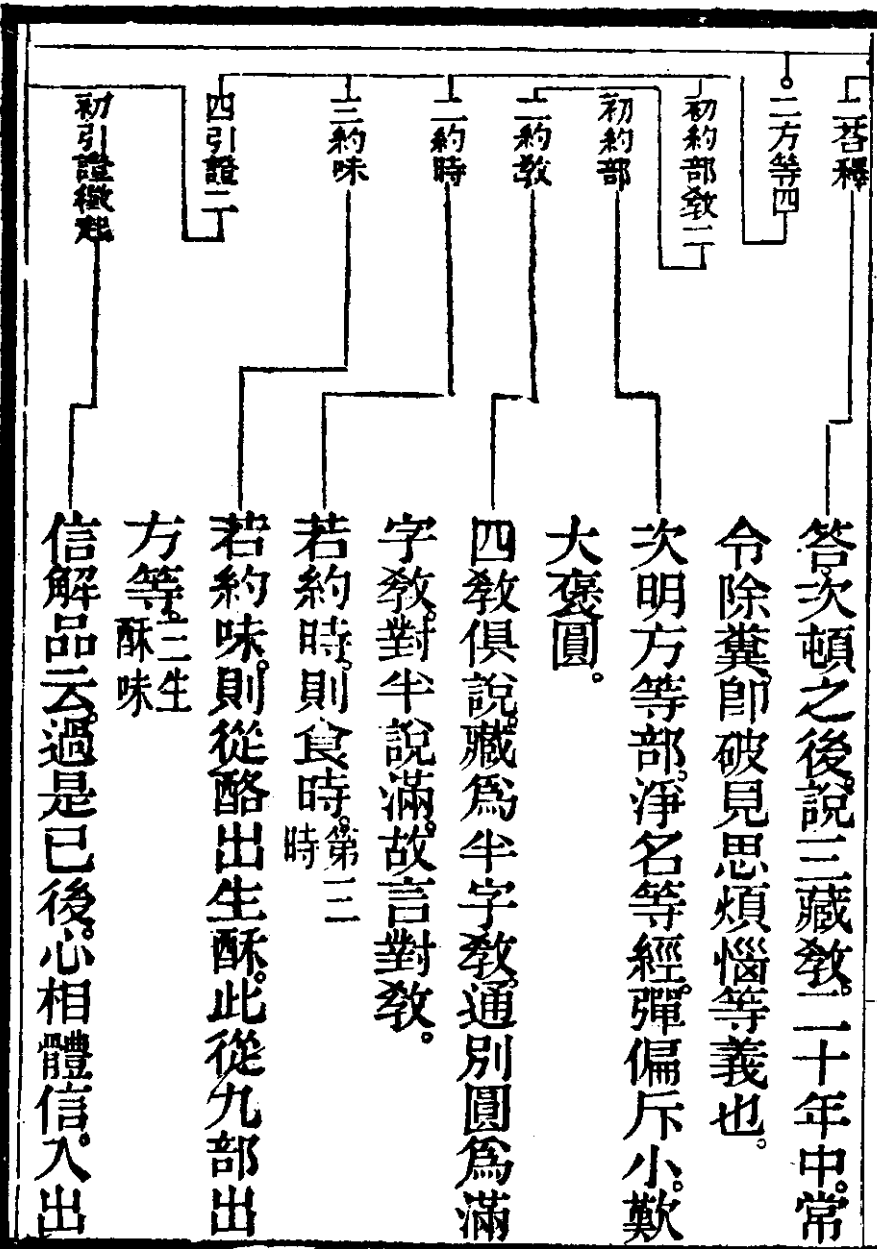 二荅釋
二方等四
初約部敎二
初約部
二約敎
二約時
三約味
四引證二
初引證徵起
答次頓之後。說三藏敎。二十年中。常
令除糞。卽破見思煩惱等義也。
次明方等部。淨名等經。彈偏斥小。歎
大褒圓。
四敎俱說。藏爲半字敎。通別圓爲滿
字敎。對半說滿。故言對敎。
若約時。則食時。第三
時
若約味。則從酪出生酥。此從九部出
方等。三生
酥味
信解品云。過是已後。心相體信。入出